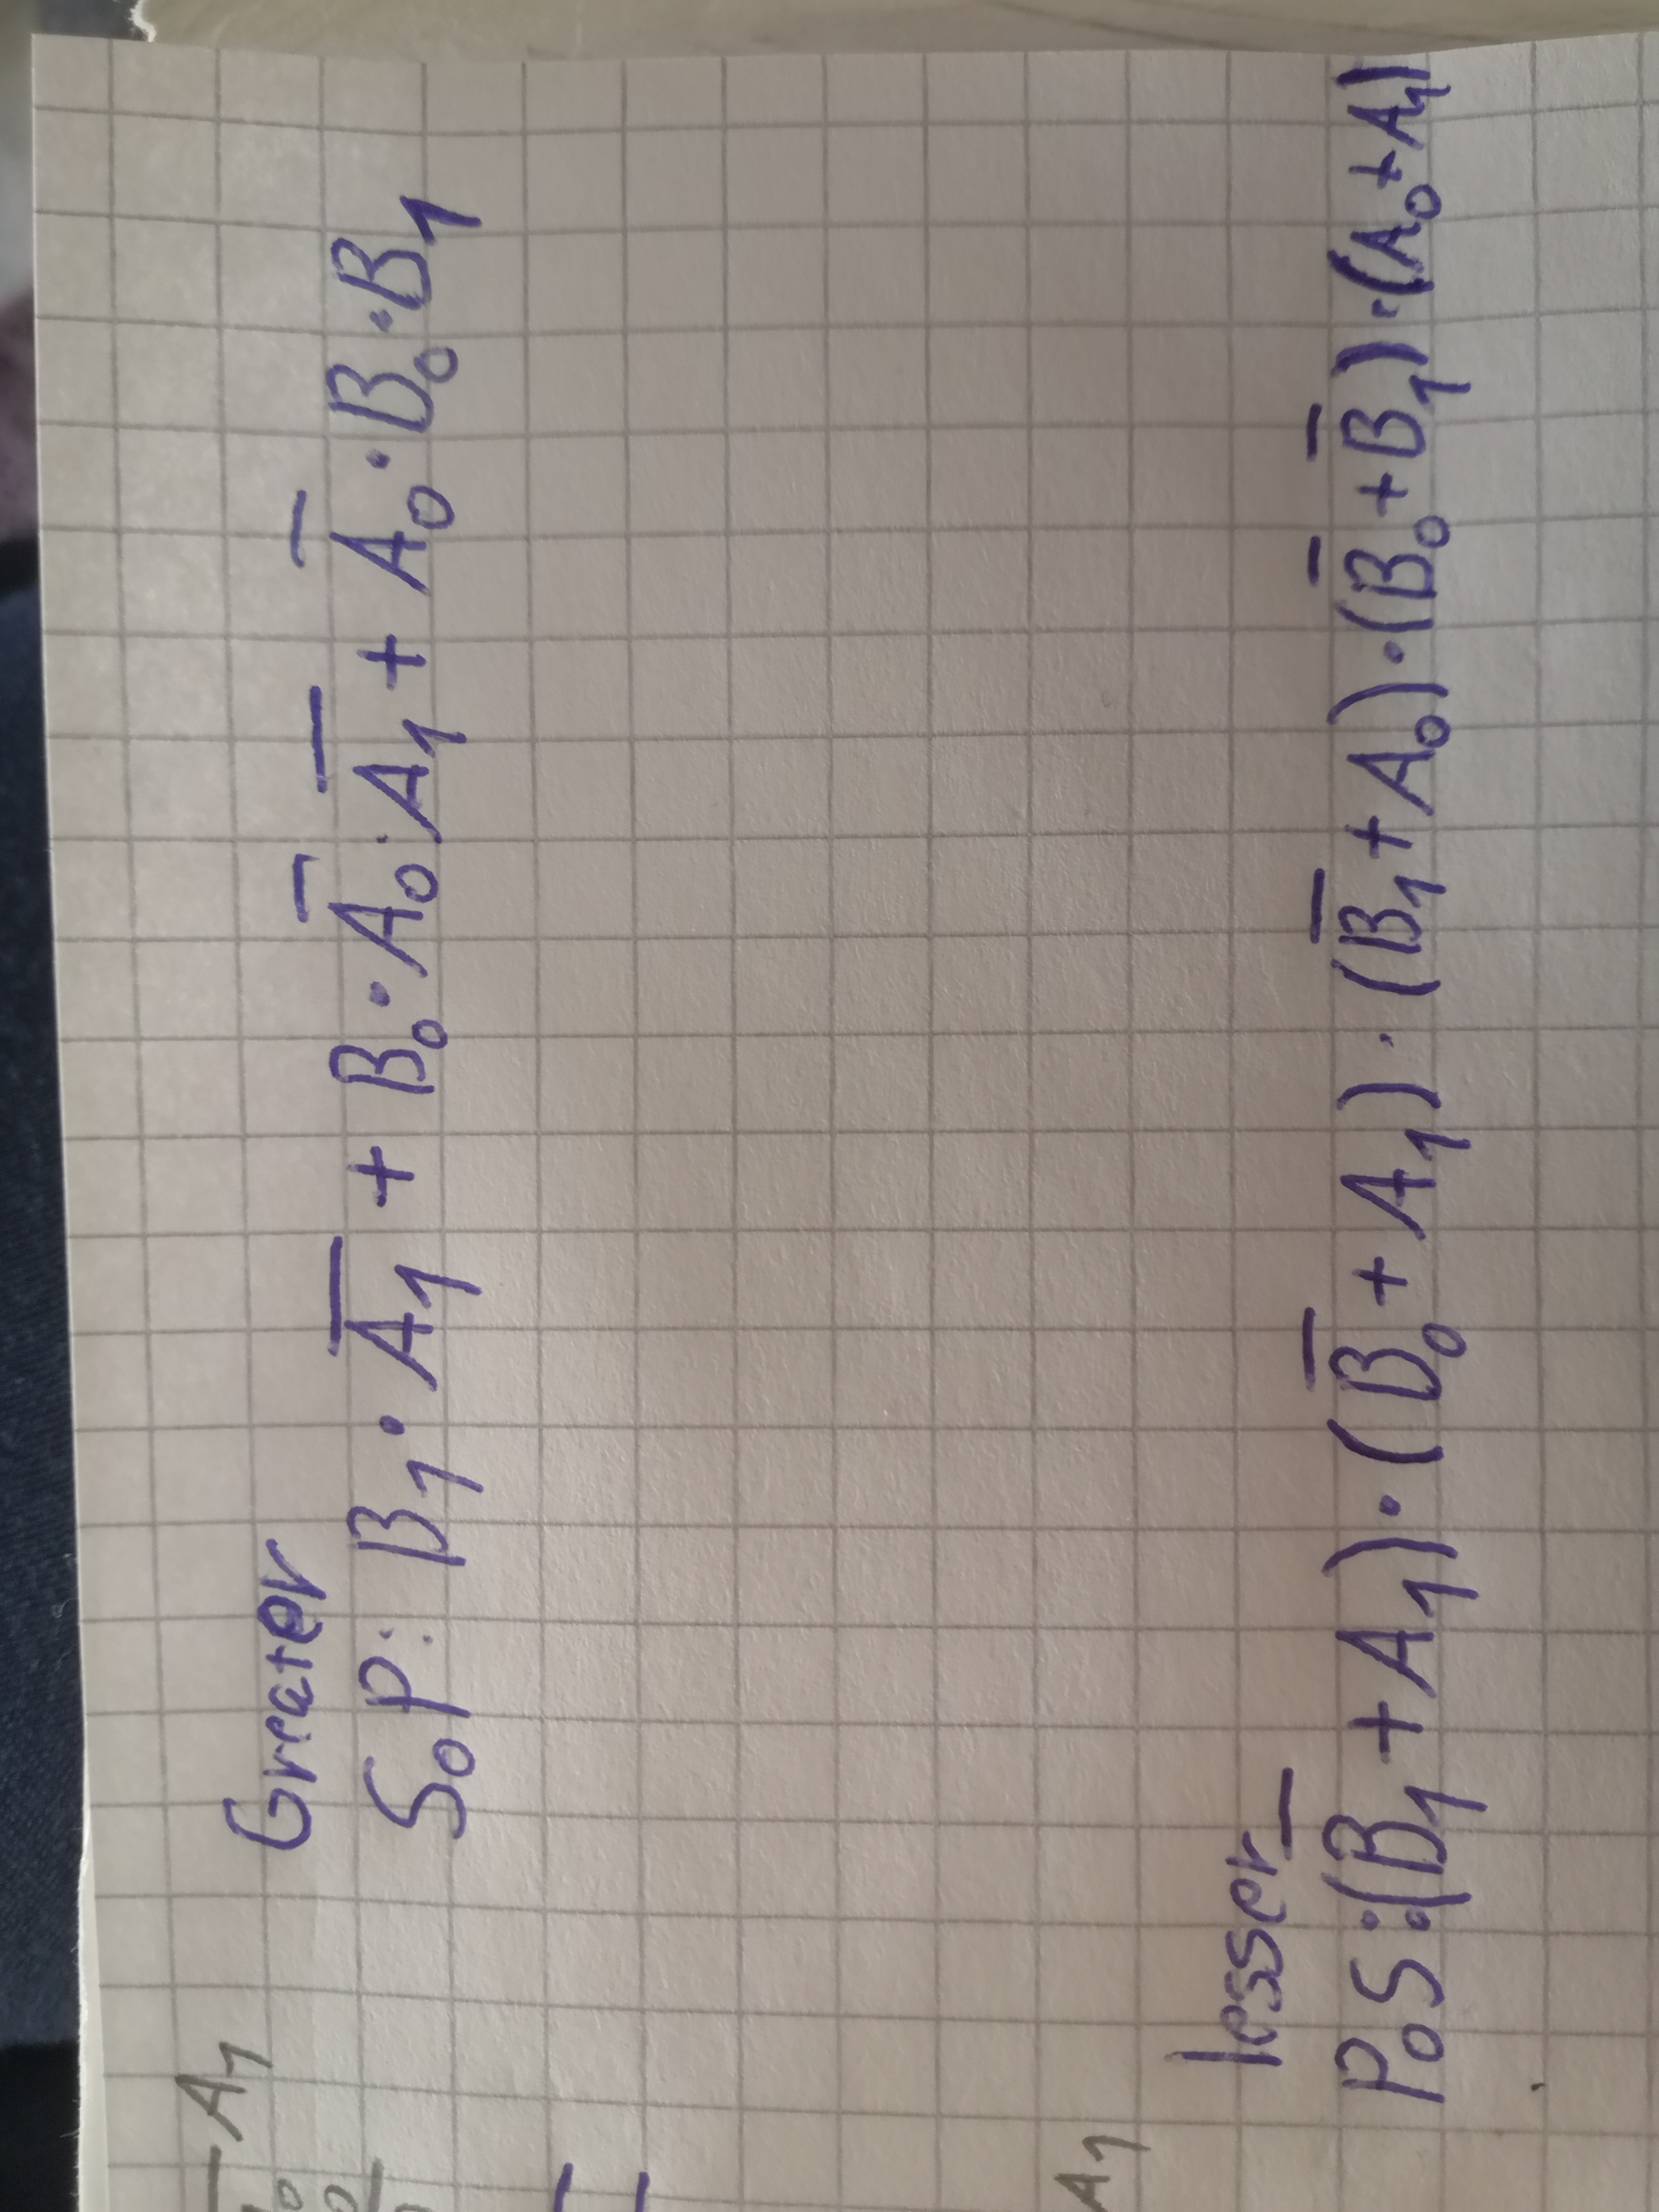 Greater
SoP: B₁·A̅₁ + B₀·A̅₀·A̅₁ + A̅₀·B₀·B₁
lesser
PoS:(B̅₁+A₁)·(B̅₀+A₁)·(B̅₁+A₀)·(B̅₀+B̅₁)·(A₀+A₁)
A₁
A₁